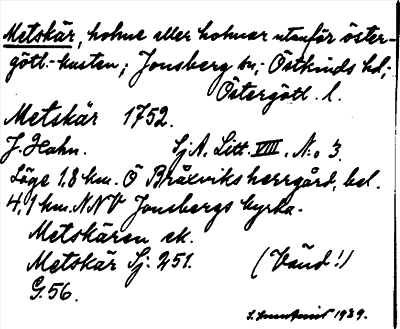 Metskär, holme eller holmar utanför öster-
götl.-kusten; Jonsberg sn; Östkinds hd;
Östergötl. l.
Metskär 1752.
J. Hahn. SjA. Litt. VIII. No 3.
Läge 1,8 km. Ö Bråxviks herrgård, bel.
4,1 km. NNV Jonsbergs kyrka.
Metskären ek.
Metskär Sj. 251. (Vänd!)
G. 56.
1939.